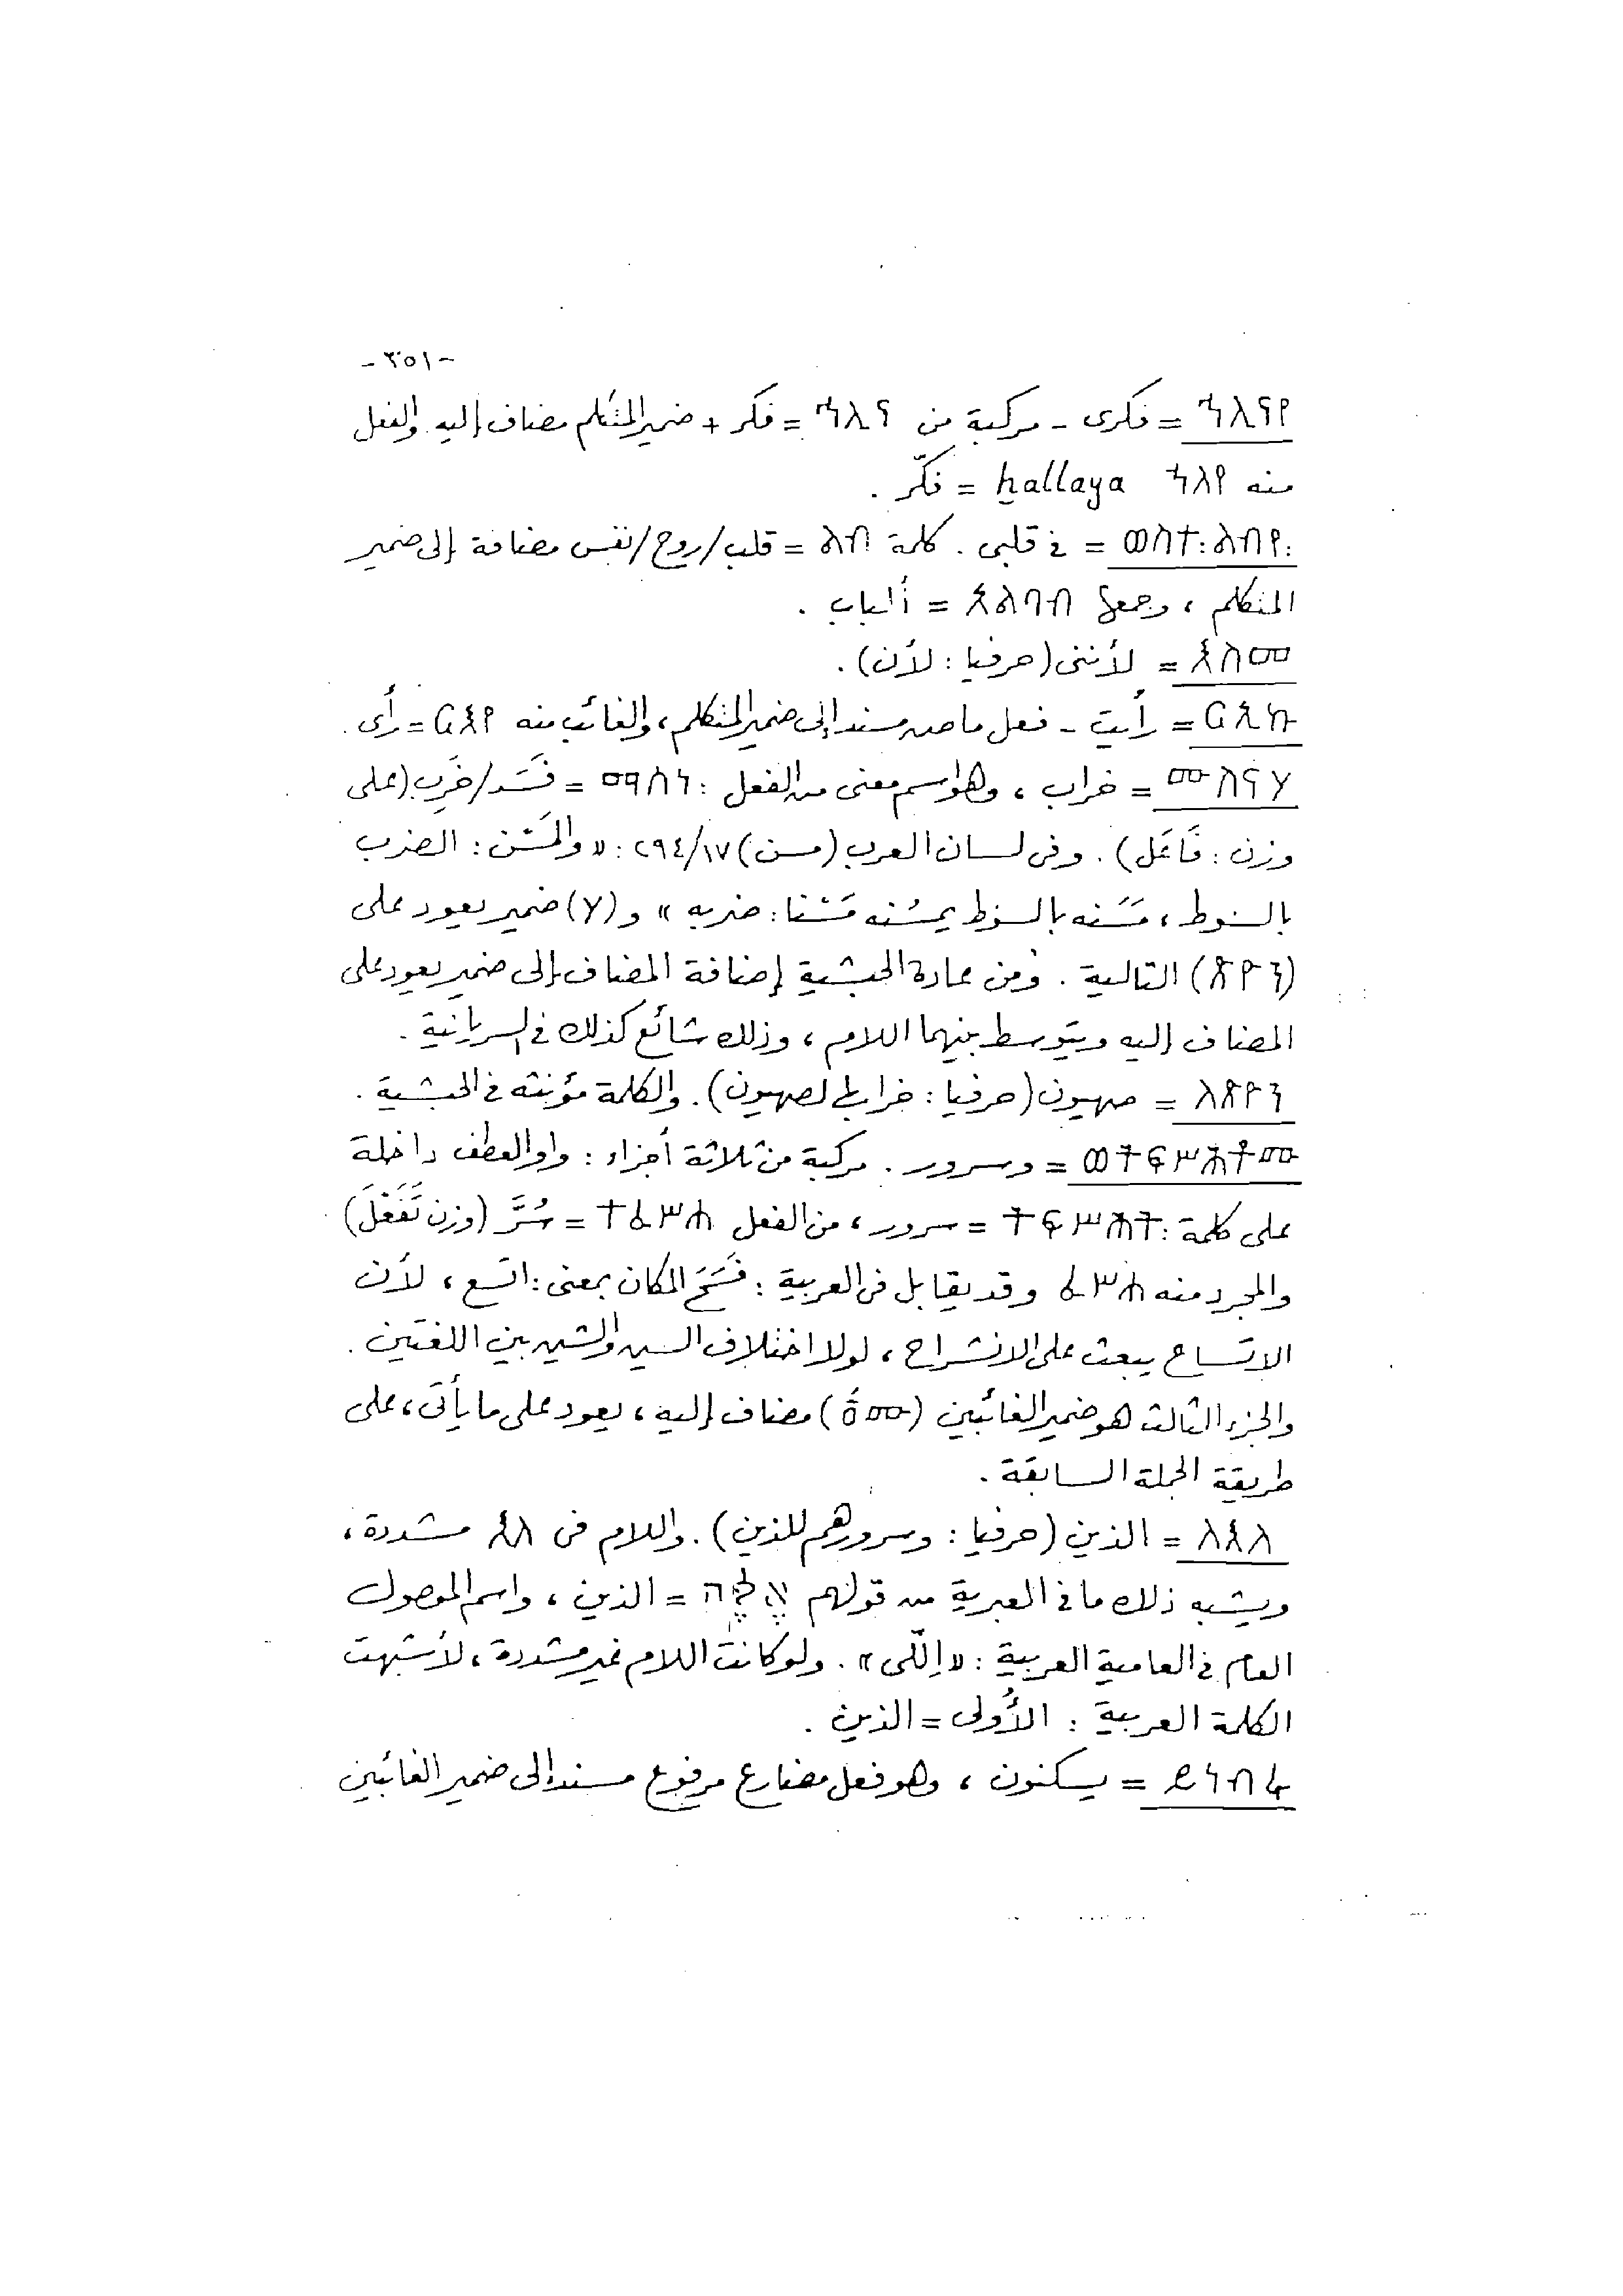 -٢٥١-
ኅሊናየ = فكرى - مركبة من ኅሊና = فكر + ضمير المتكلم مضاف إليه والفعل
منه ኀለየ hallaya = فكّر .
ውስተ፡ልብየ፡ = فى قلبى . كلمة ልብ = قلب/روح/نفس مضافة إلى ضمير
المتكلم ، وجمعها አልባብ = ألباب .
እስመ = لأننى (حرفيا : لأن) .
ርኢኩ = رأيت - فعل ماض مسند إلى ضمير المتكلم ، والغائب منه ርእየ = رأى .
خراب ، وهو اسم معنى من الفعل : ማሰነ = فَسَد/خَرِب (على
وزن : فَاعَل) . وفى لسان العرب (مسن) ٢٩٤/١٧ : « والمَسْن : الضرب
بالسوط ، مَسَنه بالسوط يمسُنه مَسْنا : ضربه » و (ሃ) ضمير يعود على
(ጽዮን) التالية . ومن عادة الحبشية إضافة المضاف إلى ضمير يعود على
المضاف إليه ويتوسط بينهما اللام ، وذلك شائع كذلك فى السريانية .
ለጽዮን = صهيون (حرفيا : خرابها لصهيون) . والكلمة مؤنثة فى الحبشية .
ወትፍሥሕቶሙ = وسرور . مركبة من ثلاثة أجزاء : واو العطف داخلة
على كلمة : ትፍሥሕት = سرور ، من الفعل ተፈሥሐ = سُرَّ (وزن تَفَعْلَ)
والمجرد منه ፈሥሐ وقد يقابل فى العربية : فَسَحَ المكان بمعنى : اتسع ، لأن
الاتساع يبعث على الانشراح ، لولا اختلاف السين والشين بين اللغتين .
والجزء الثالث هو ضمير الغائبين (ሆሙ) مضاف إليه ، يعود على ما يأتى ، على
طريقة الجملة السابقة .
ለእለ = الذين (حرفيا : وسرورهم للذين) . واللام فى እለ مشددة ،
ويشبه ذلك ما فى العبرية من قولهم אֵלֶּה = الذين ، واسم الموصول
العام فى العامية العربية : « اِللّى » . ولو كانت اللام غير مشددة ، لأشبهت
الكلمة العربية : الأُولى = الذين .
ይነብሩ = يسكنون ، وهو فعل مضارع مرفوع مسند إلى ضمير الغائبين